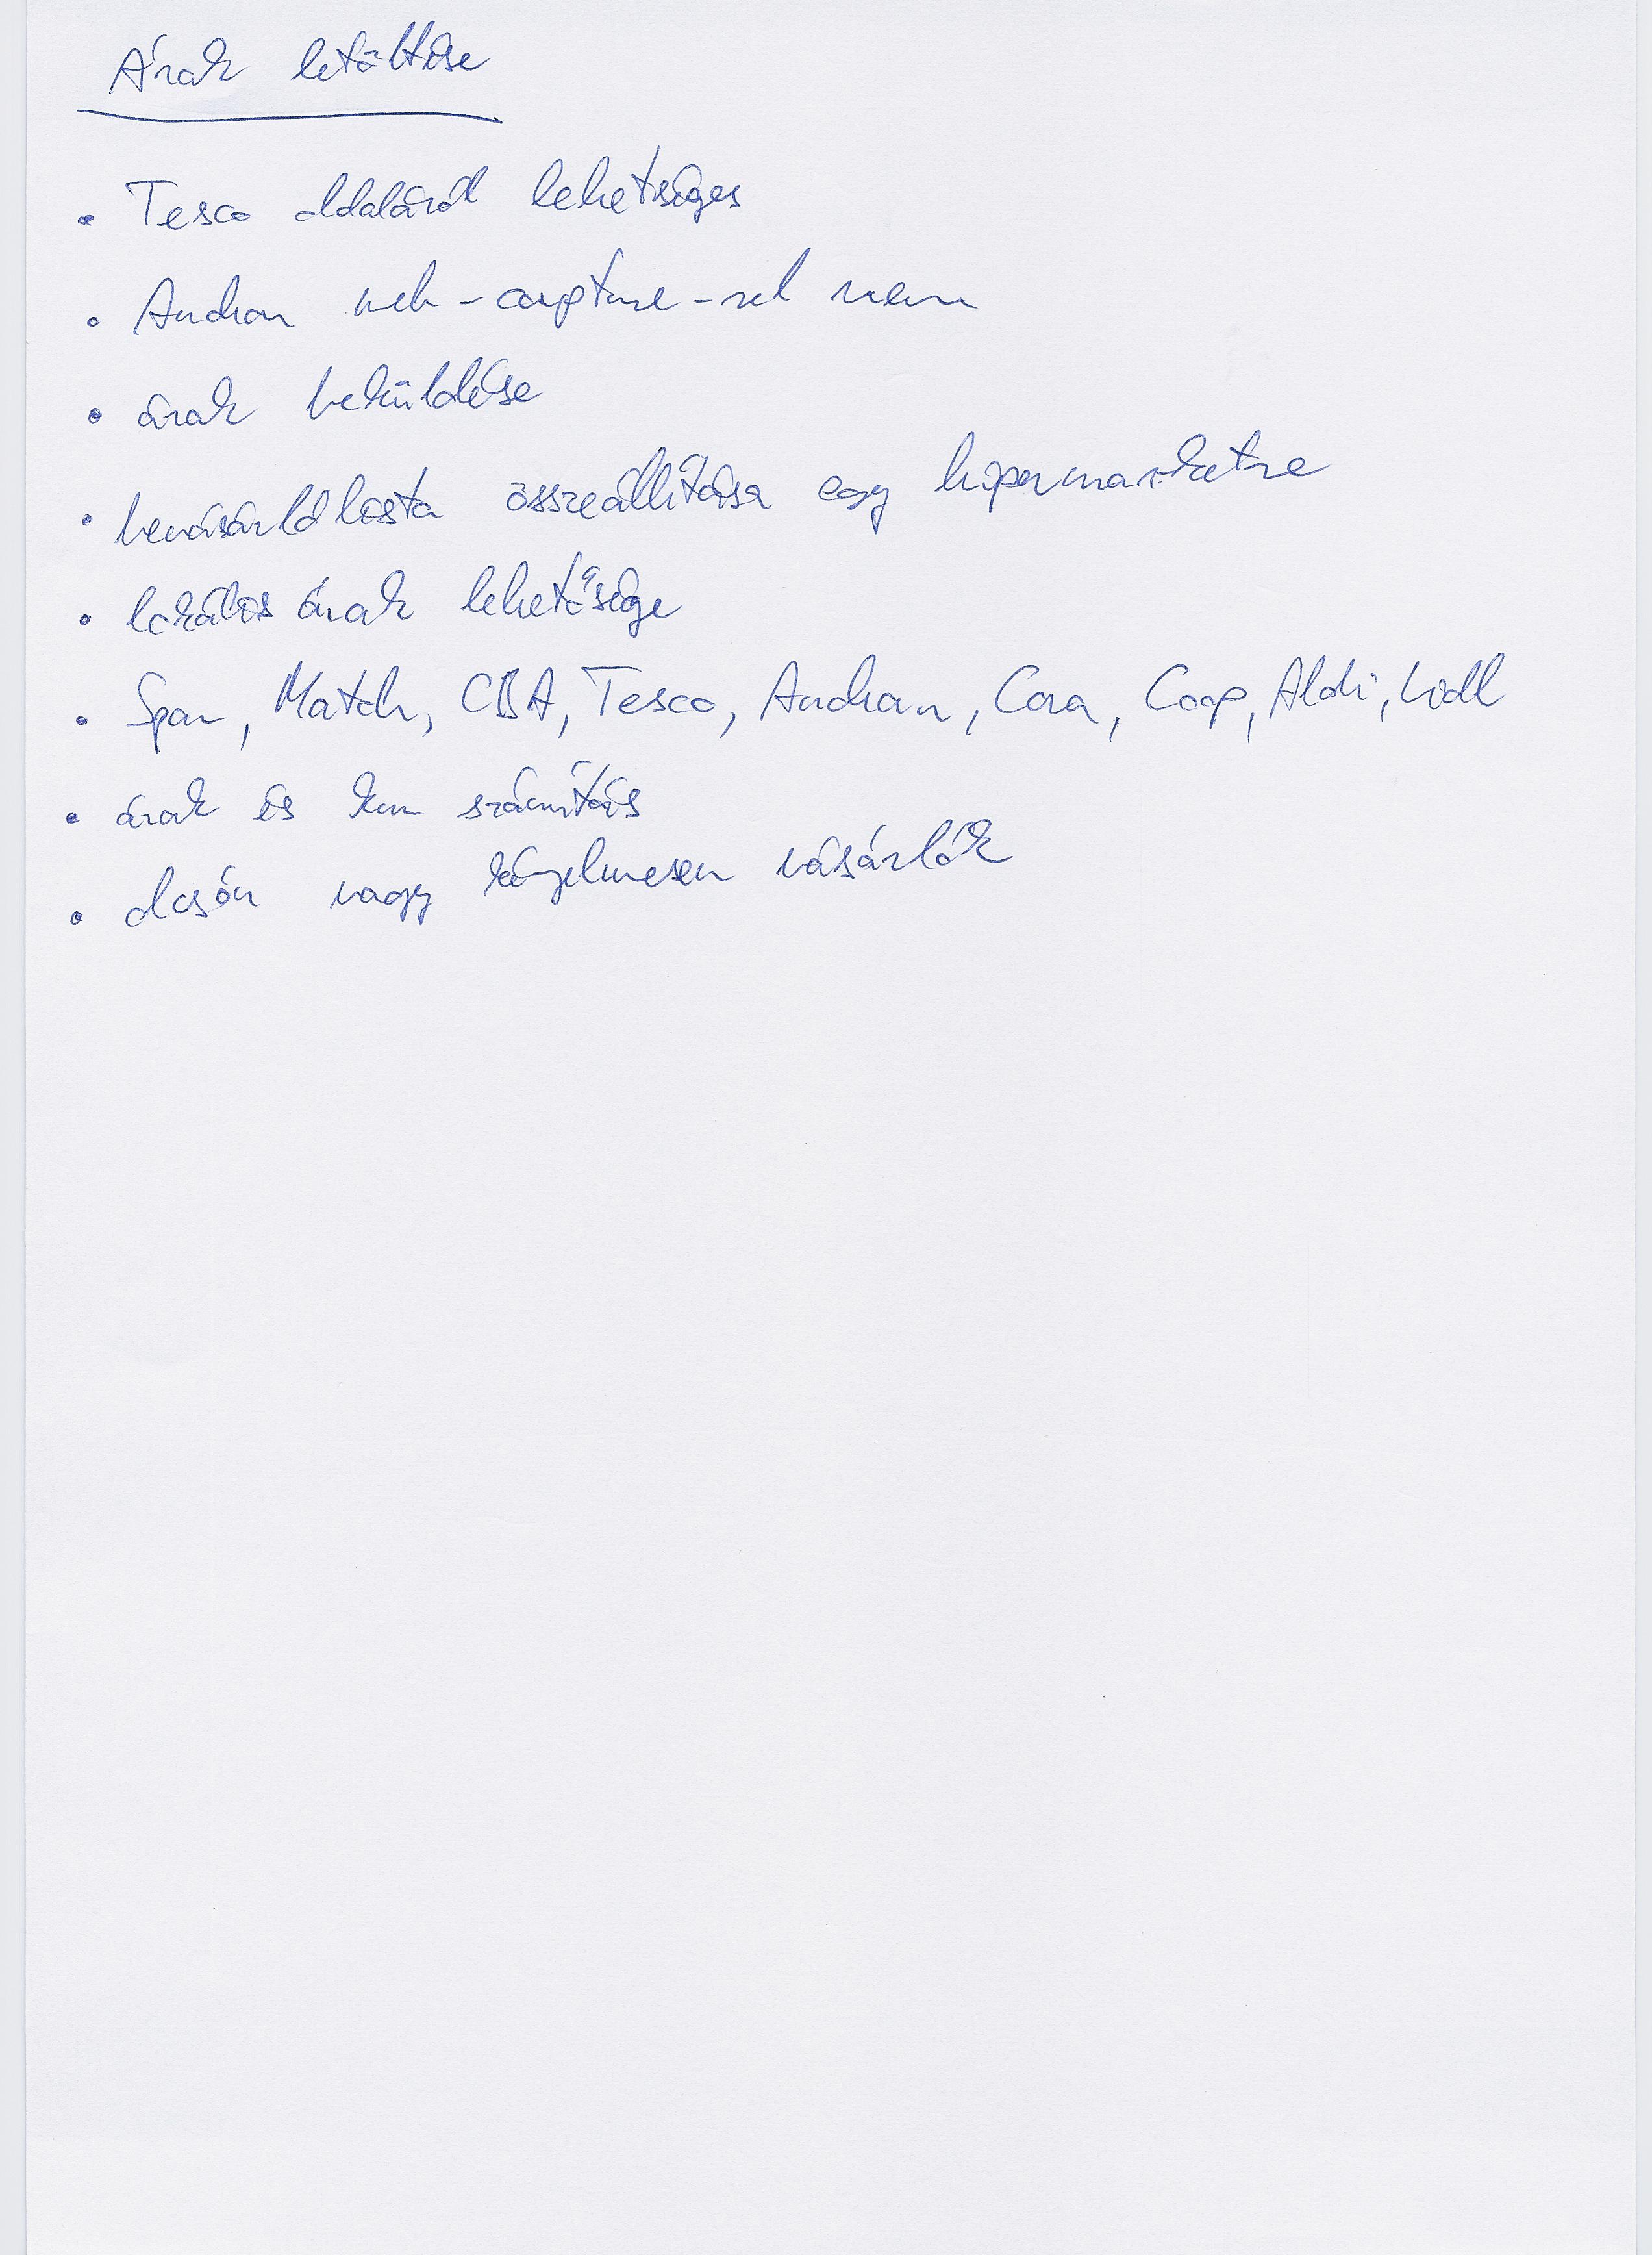 Árak letöltése
• Tesco oldaláról lehetséges
• Auchan web-capture-rel nem
• árak beküldése
• bevásárlólista összeállítása egy hipermarketre
• lokális árak lehetősége
• Spar, Match, CBA, Tesco, Auchan, Cora, Coop, Aldi, Lidl
• árak és km számítás
• olcsón vagy kényelmesen vásárlók